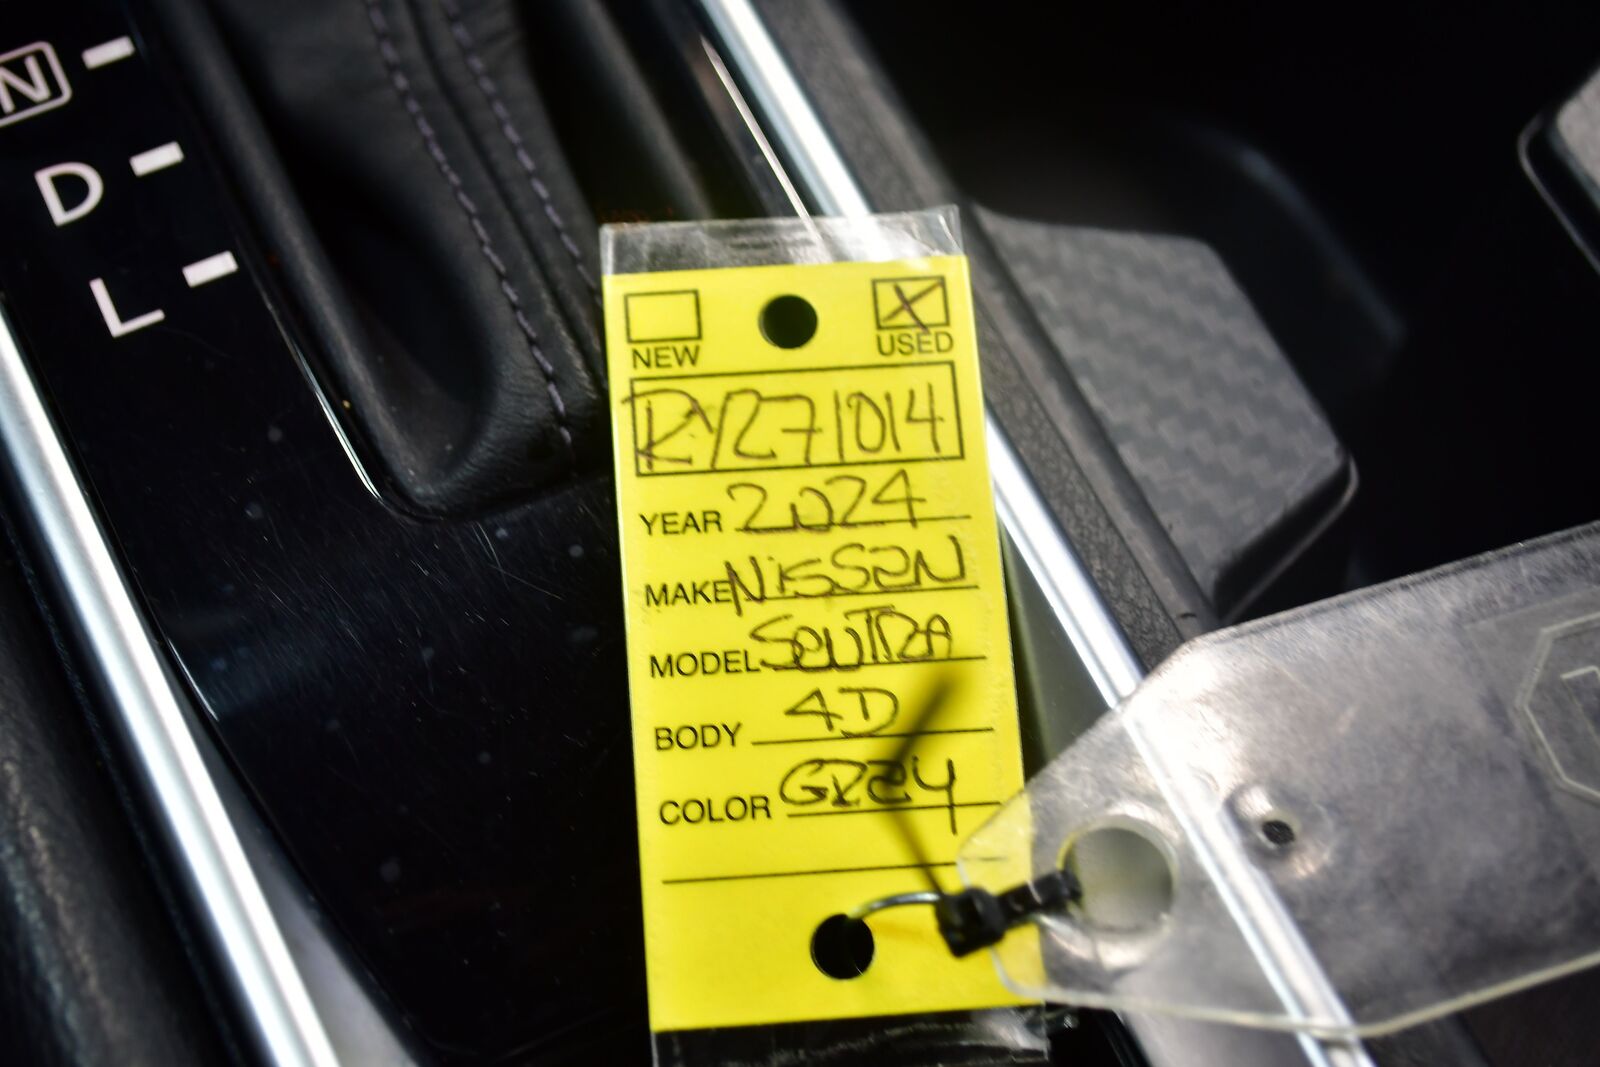 N
D
L
NEW
USED
RY271014
YEAR 2024
MAKE Nissan
MODEL SENTRA
BODY 4D
COLOR GRay